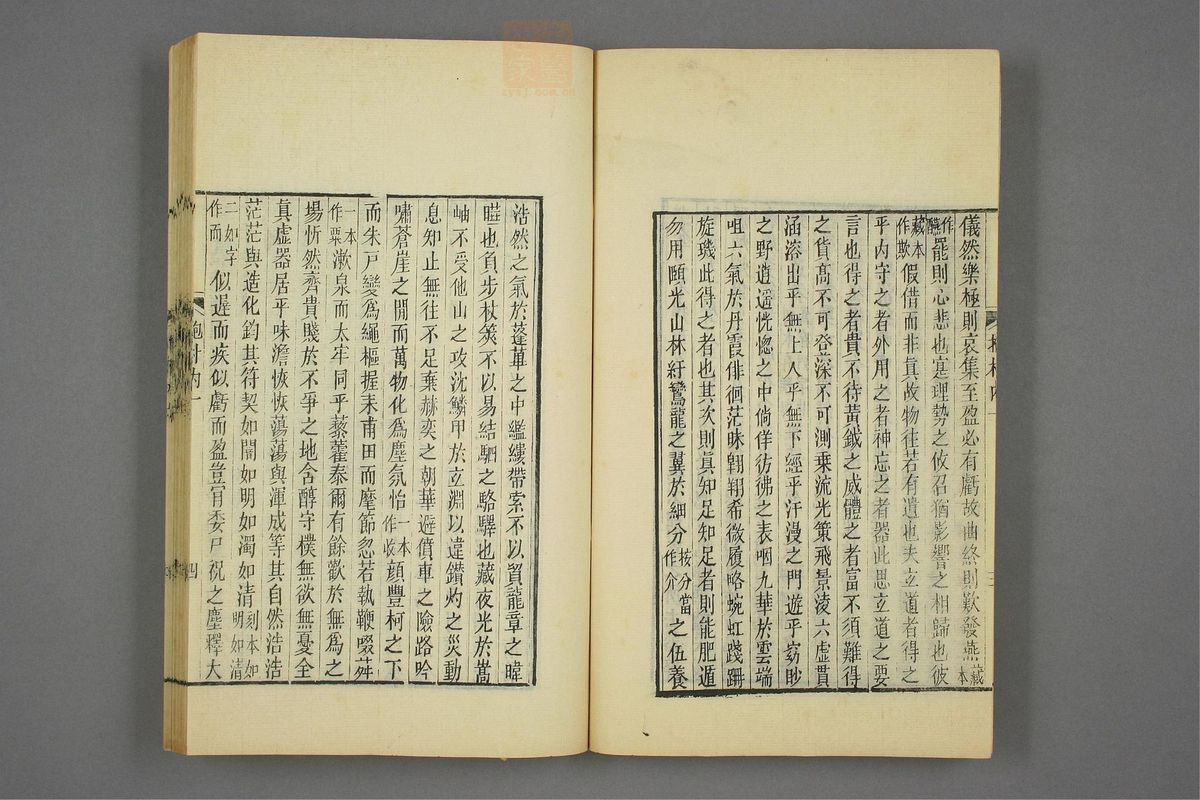 儀然樂極則哀集至盈必有虧故曲終則歎發燕藏本
作醼罷則心悲也寔理勢之攸召猶影響之相歸也彼
藏本作欺假借而非真故物往若有遺也夫立道者得之
乎內守之者外用之者神忘之者器此思立道之要
言也得之者貴不待黃鉞之威體之者富不須難得
之貨高不可登深不可測乗流光策飛景淩六虛貫
涵溶出乎無上入乎無下經乎汗漫之門遊乎窈眇
之野逍遥恍惚之中倘佯彷彿之表咽九華於雲端
咀六氣於丹霞俳徊茫昧翱翔希微履略蜿虹踐跚
旋璣此得之者也其次則真知足知足者則能肥遁
勿用頤光山林紆鸞龍之翼於細分按分當作介之伍養
浩然之氣於蓬蓽之中繿縷帶索不以貿龍章之暐
曄也負步杖筴不以易結駟之駱驛也藏夜光於嵩
岫不受他山之攻沈鱗甲於立淵以違鑽灼之災動
息知止無往不足棄赫奕之朝華避僨車之險路吟
嘯蒼崖之閒而萬物化爲塵氛怡一本作收顔豐柯之下
而朱戸變爲繩樞握耒甫田而麾節忽若執鞭啜荈
一本作粟漱泉而太牢同乎藜藿泰爾有餘歡於無爲之
場忻然齊貴賤於不爭之地含醇守樸無欲無憂全
真虛器居平味澹恢恢蕩蕩與渾成等其自然浩浩
茫茫與造化鈞其符契如闇如明如濁如清刻本如明如清
二如字作而似遲而疾似虧而盈豈肯委尸祝之塵釋大
抱朴內一
四